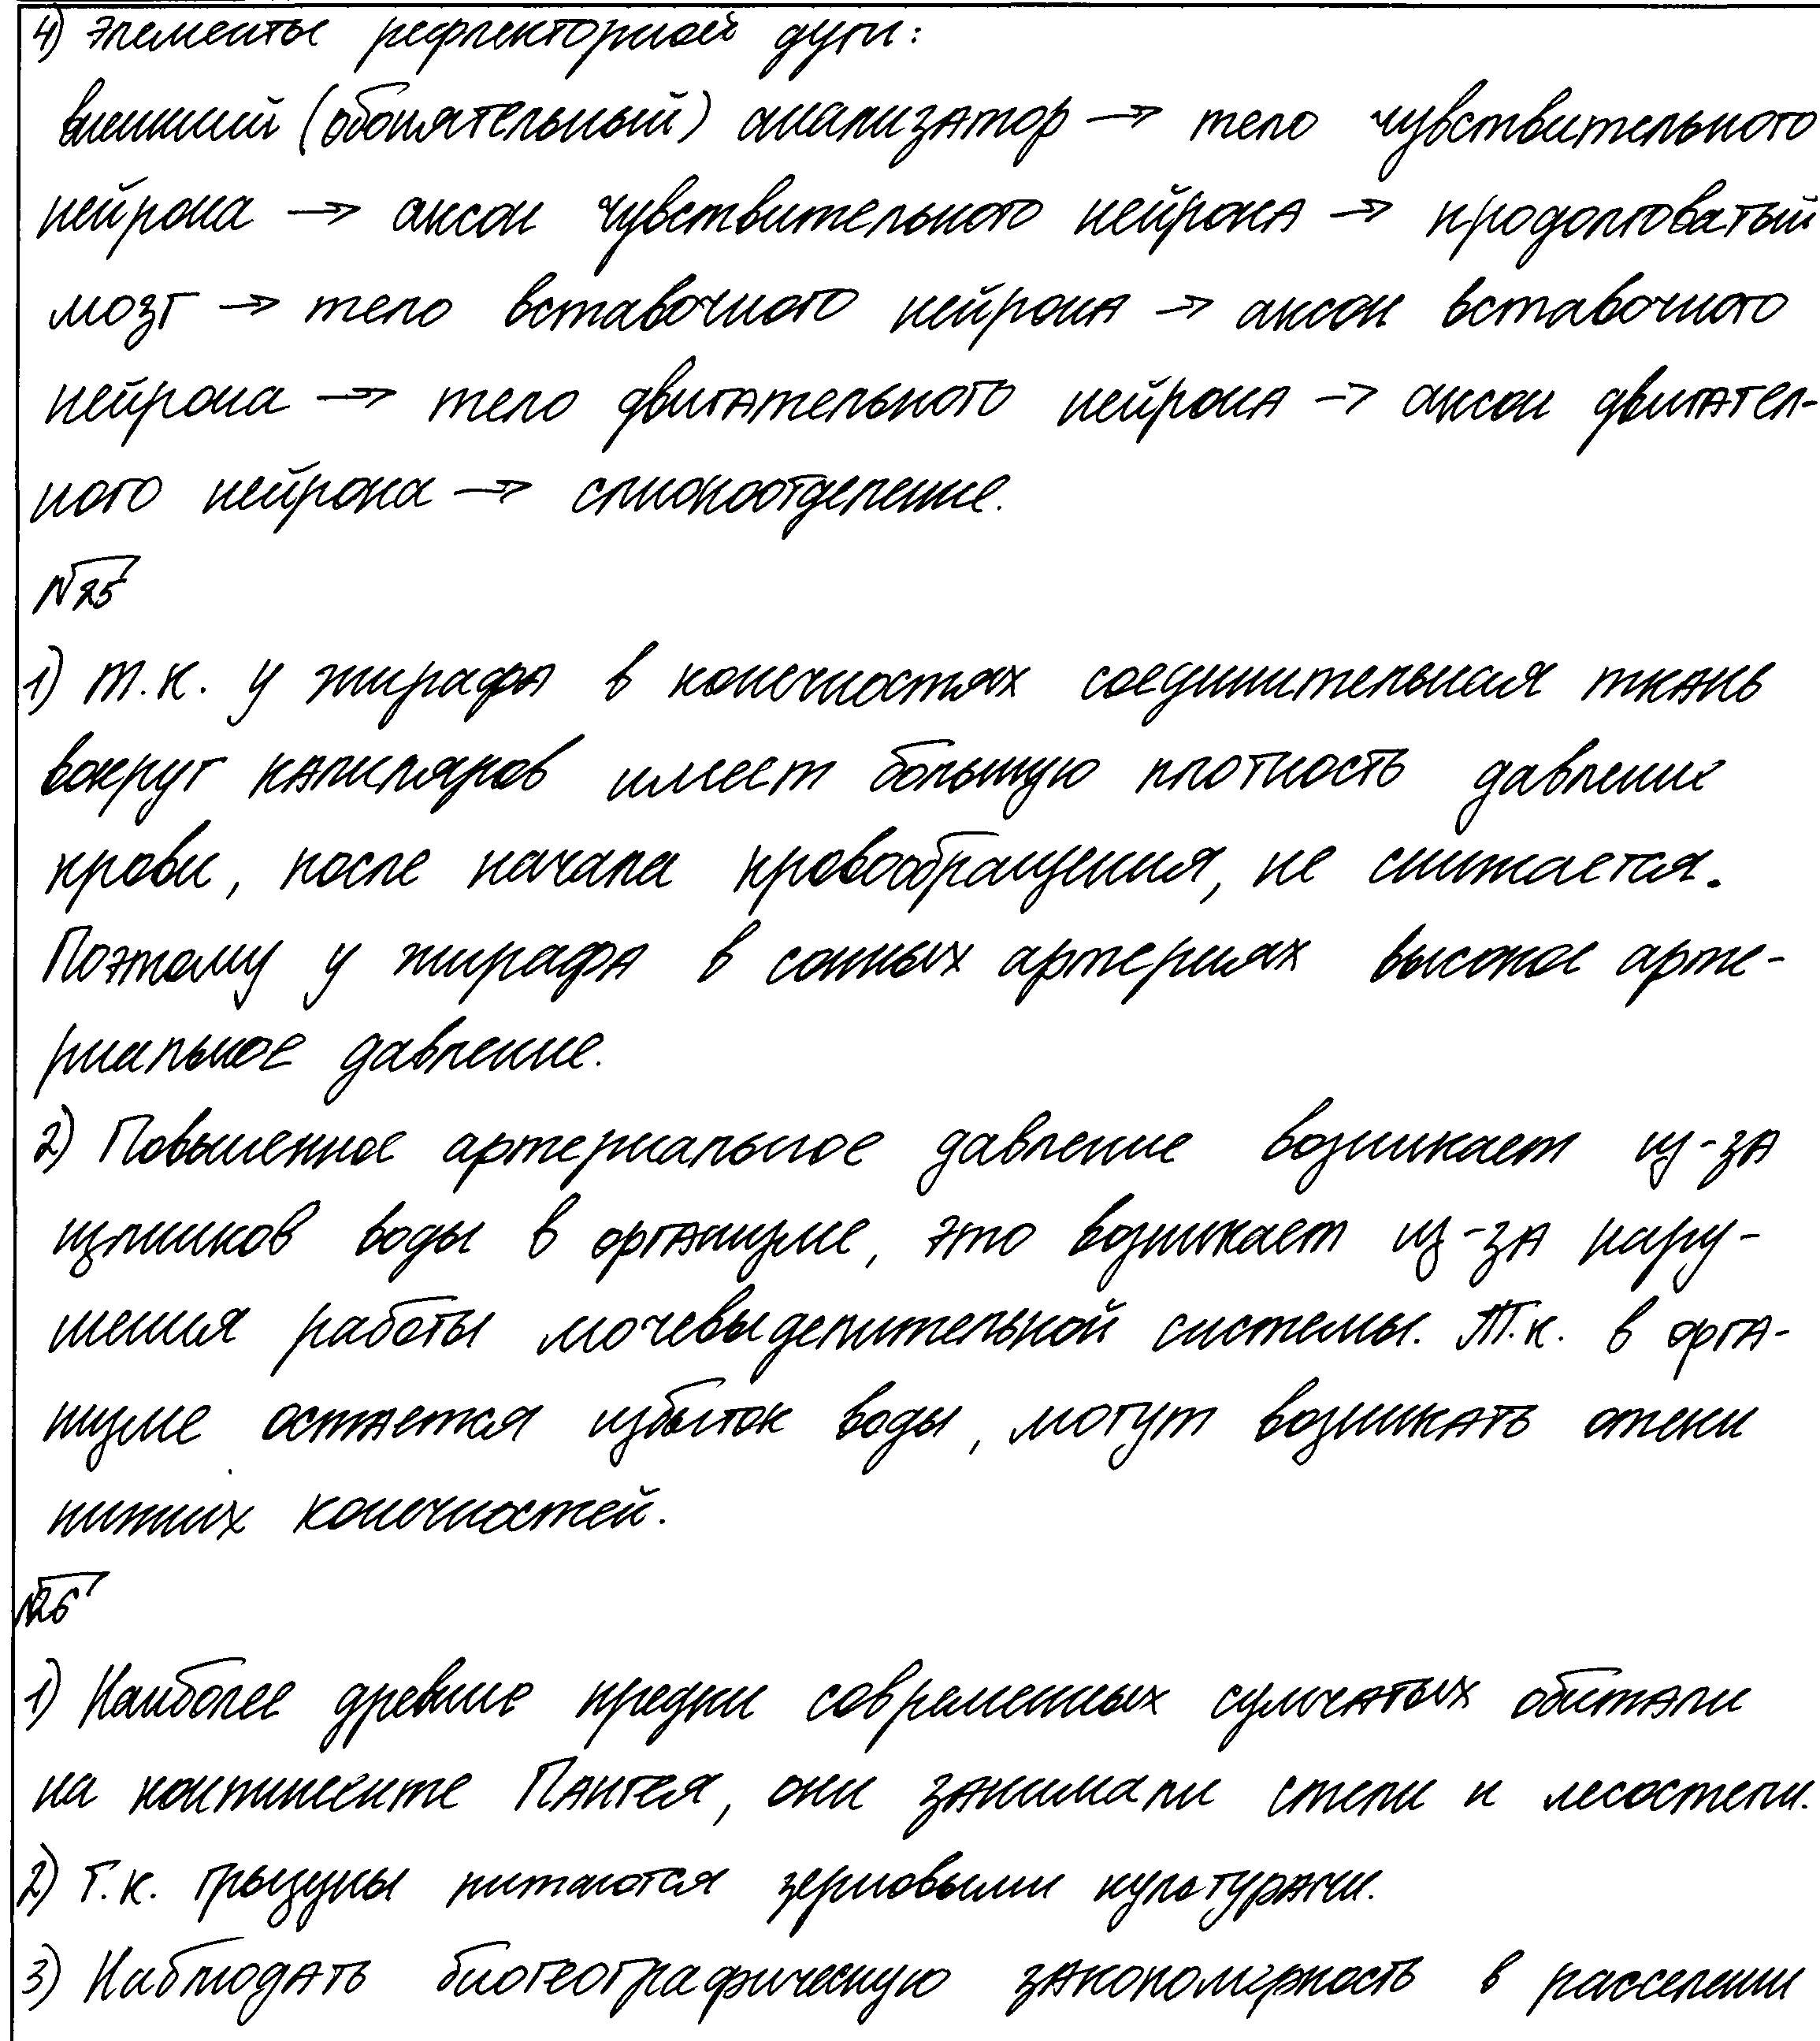 4) элементы рефлекторной дуги:
внешний (обонятельный) анализатор → тело чувствительного
нейрона → аксон чувствительного нейрона → продолговатый
мозг → тело вставочного нейрона → аксон вставочного
нейрона → тело двигательного нейрона → аксон двигател-
ного нейрона → слюноотделение.
№25
1) т.к. у жирафа в конечностях соединительная ткань
вокруг капиляров имеет большую плотность давление
крови, после начала кровообращения, не снижается.
Поэтому у жирафа в сонных артериях высокое арте-
риальное давление.
2) Повышенное артериальное давление возникает из-за
излишков воды в организме, это возникает из-за нару-
шения работы мочевыделительной системы. Т.к. в орга-
низме остается избыток воды, могут возникать отеки
нижних конечностей.
№26
1) Наиболее древние предки современных сумчатых обитали
на континенте Пангея, они занимали степи и лесостепи.
2) Т.к. грызуны питаются зерновыми культурами.
3) Наблюдать биогеографическую закономерность в расселении